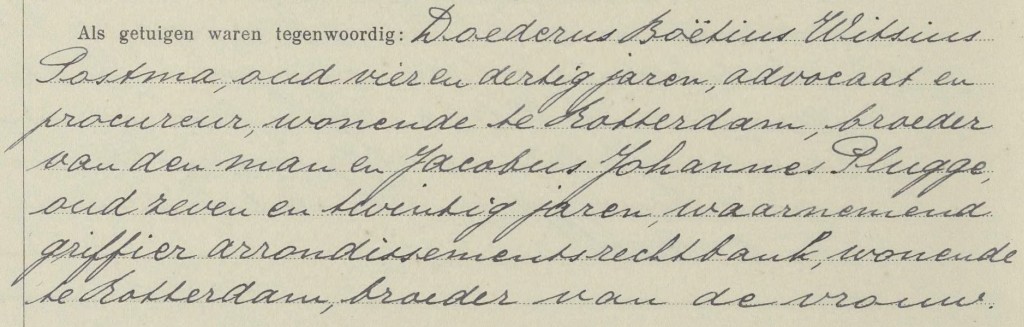 Als getuigen waren tegenwoordig: Doederus Boëtius Witsius
Postma, oud vier en dertig jaren, advocaat en
procureur, wonende te Rotterdam, broeder
van den man en Jacobus Johannes Plugge,
oud zeven en twintig jaren, waarnemend
griffier arrondissementsrechtbank, wonende
te Rotterdam, broeder van de vrouw.